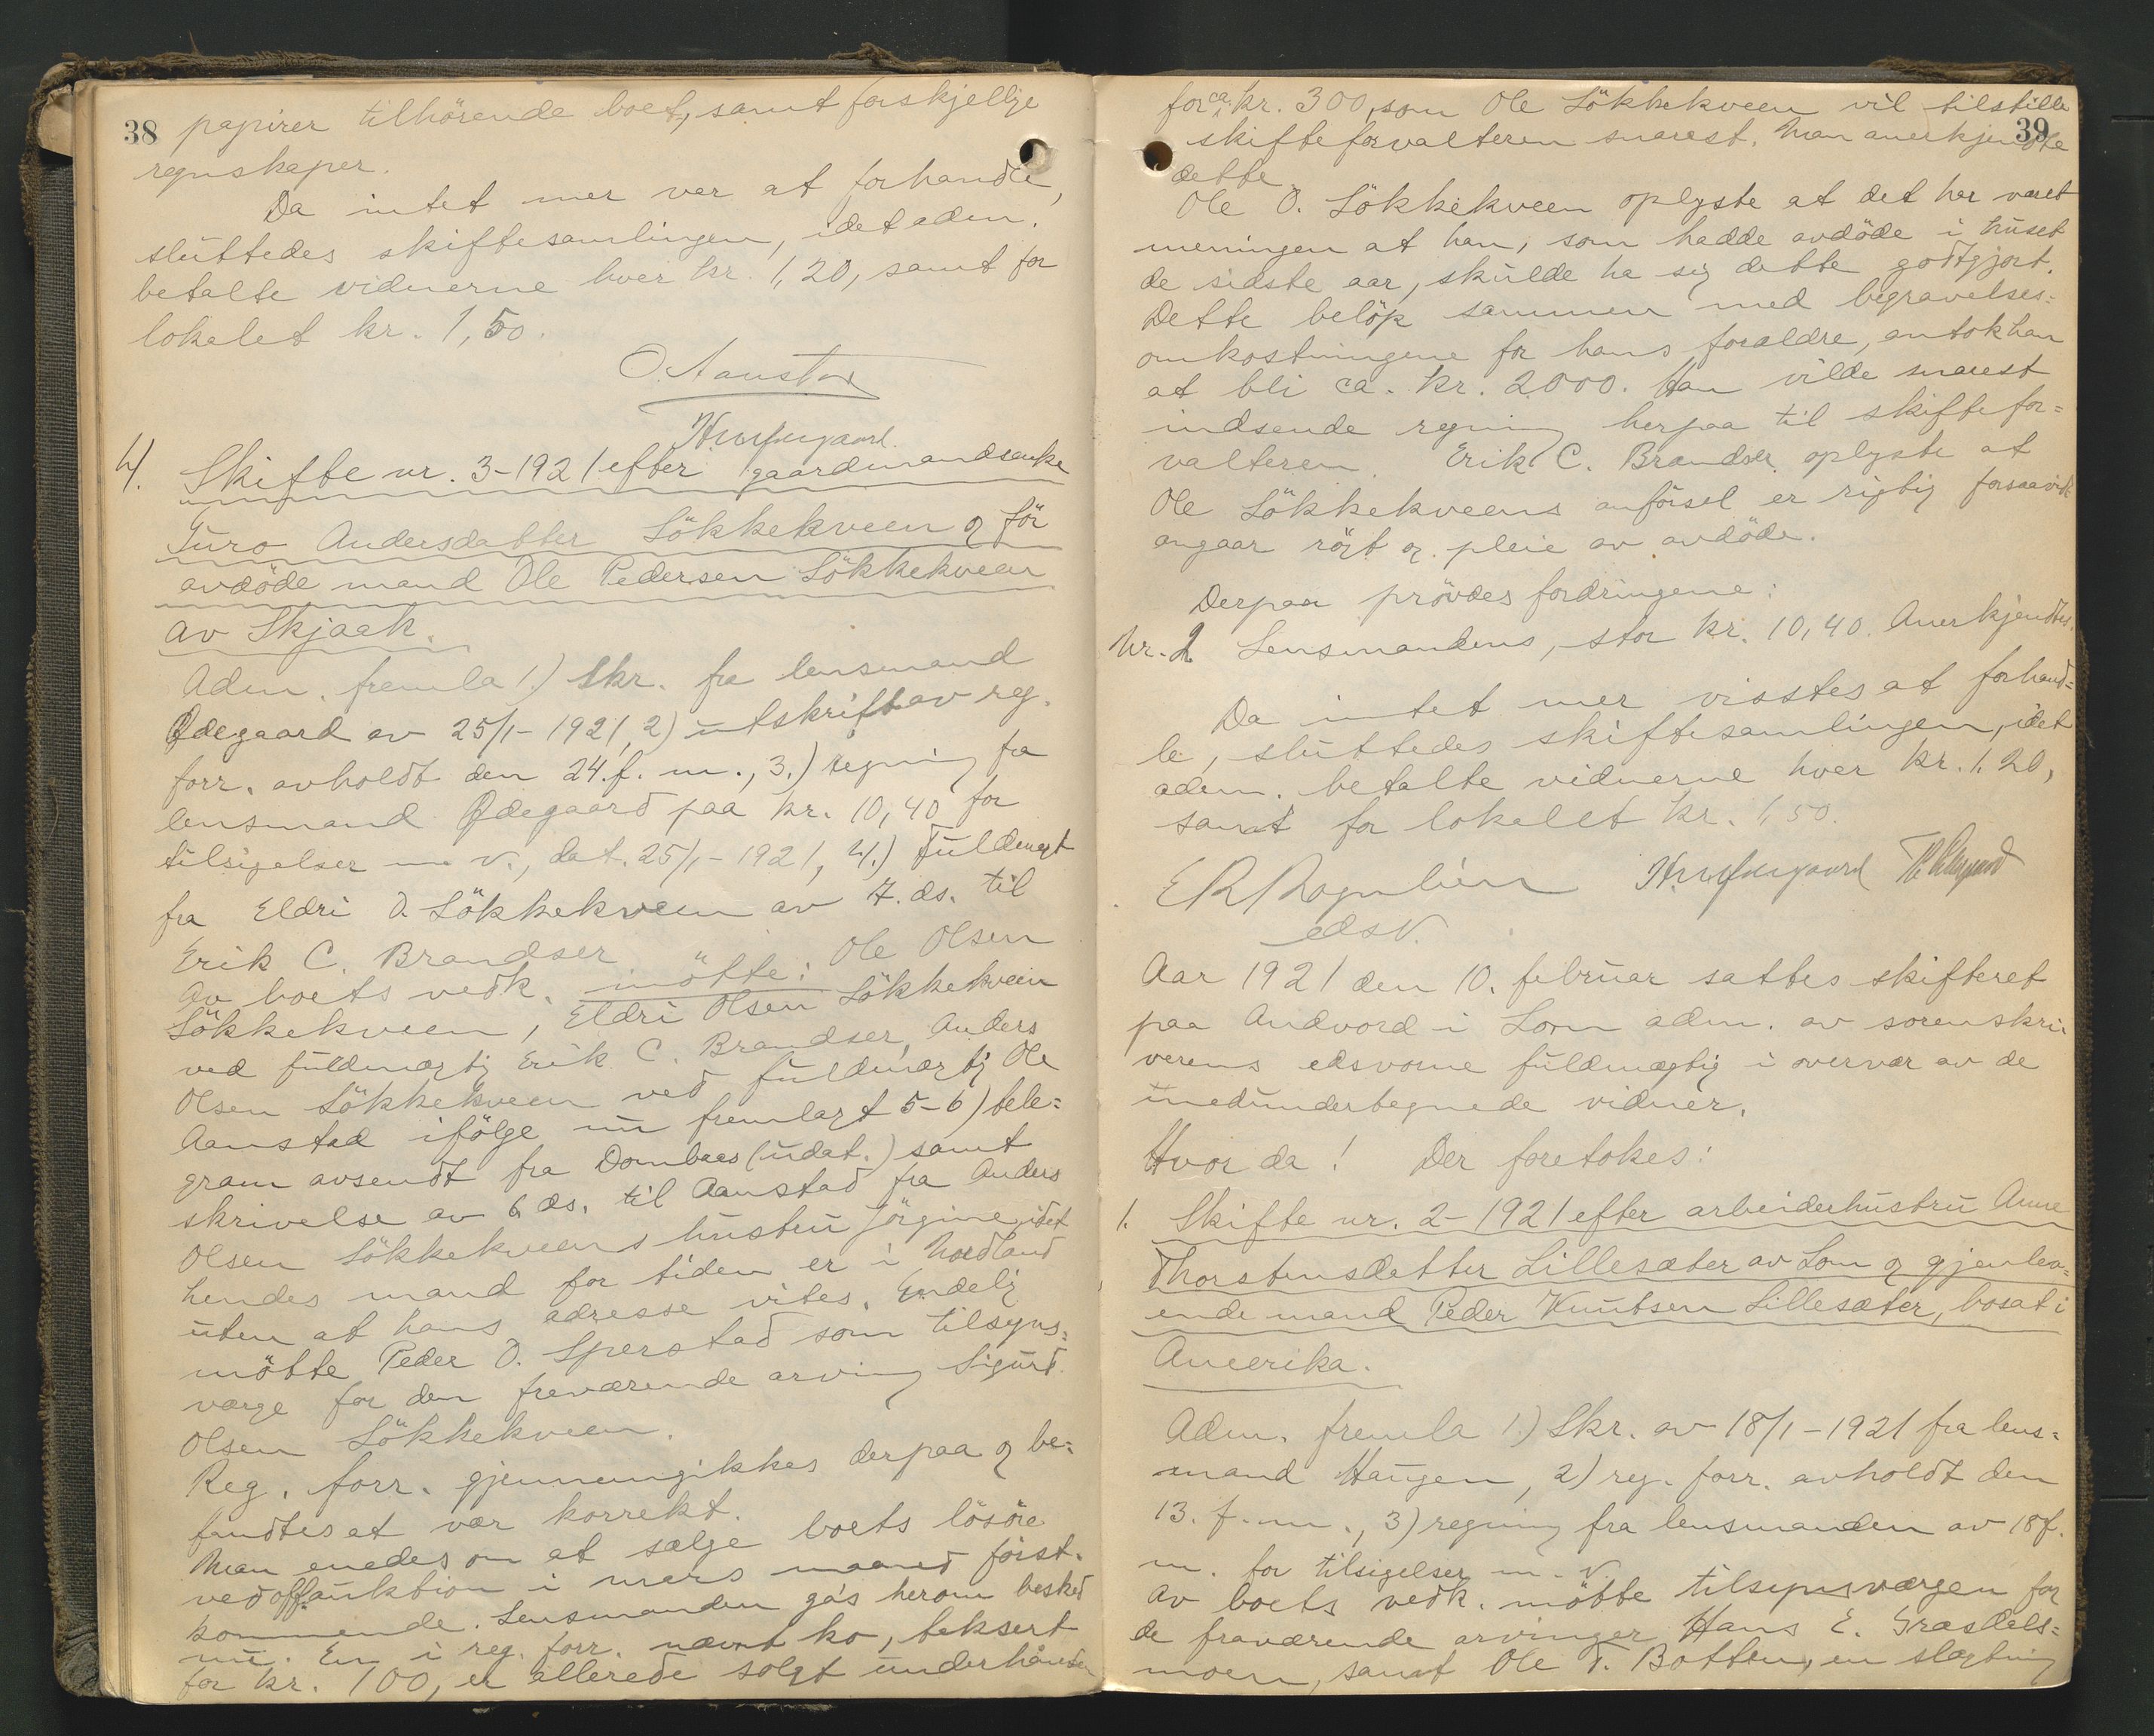 38 papirer tilhörende boet, samt forskjellige
regnskaper.
Da intet mer var at forhandle,
sluttedes skiftesamlingen, idet adm.
betalte vidnerne hver kr. 1,20, samt for
lokalet kr. 1,50.
O. Aanstad
4. Skifte nr. 3-1921 efter gaardmandsenke
Guro Andersdatter Lökkekveen og för
avdöde mand Ole Pedersen Lökkekveen
av Skjaak.
Adm. fremla 1.) Skr. fra lensmand
Ødegaard av 25/1-1921, 2) utskrift av reg.
forr. avholdt den 24. f. m., 3.) regning fra
lensmand Ødegaard paa kr. 10,40 for
tilsigelser m. v., dat. 25/1-1921, 4.) Fuldmagt
fra Eldri O. Lökkekveen av 7. ds. til
Erik C. Brandser
Av boets vedk. mötte: Ole Olsen
Lökkekveen, Eldri Olsen Lökkekveen
ved fuldmægtig Erik C. Brandser, Anders
Olsen Lökkekveen ved fuldmægtig Ole
Aanstad ifölge nu fremlagt 5-6) tele=
gram avsendt fra Dombaas (udat.) samt
skrivelse av 6. ds. til Aanstad fra Anders
Olsen Lökkekveens hustru Jörgine, idet
hendes mand for tiden er i Nordland
uten at hans adresse vites. Endelig
mötte Peder O. Sperstad som tilsyns=
værge for den fraværende arving Sigurd
Olsen Lökkekveen.
Reg. forr. gjennemgikkes derpaa og be=
fandtes at være korrekt.
Man enedes om at sælge boets lösöre
ved off. auktion i mars maaned först-
kommende. Lensmanden ga's herom besked
nu. En i reg. forr. nævnt ko, taksert
for kr. 100, er allerede solgt underhaanden
39
for ca. kr. 300, som Ole Lökkekveen vil tilstille
skifteforvalteren snarest. Man anerkjendte
dette.
Ole O. Lökkekveen oplyste at det har været
meningen at han, som hadde avdöde i huset
de sidste aar, skulde ha sig dette godtgjort.
Dette belöp sammen med begravelses=
omkostningene for hans forældre, antok han
at bli ca. kr. 2000. Han vilde snarest
indsende regning herpaa til skiftefor=
valteren. Erik C. Brandser oplyste at
Ole Lökkekveens anförsel er rigtig forsaavidt
angaar rögt og pleie av avdöde.
Derpaa prövdes fordringene:
Nr. 1 Lensmandens, stor kr. 10,40. Anerkjendtes.
Da intet mer visstes at forhand=
le, sluttedes skiftesamlingen, idet
adm. betalte vidnerne hver kr. 1.20,
samt for lokalet kr. 1,50.
E R Rognlien
edsv.
Aar 1921 den 10. februar sattes skifteret
paa Andvord i Lom adm. av sorenskri
verens edsvorne fuldmægtig i overvær av de
medundertegnede vidner.
Hvor da! Der foretokes:
1. Skifte nr. 2-1921 efter arbeiderhustru Anne
Thorstensdatter Lillesæter av Lom og gjenlev=
ende mand Peder Knutsen Lillesæter, bosat i
Amerika.
Adm. fremla 1.) Skr. av 18/1-1921 fra lens=
mand Haugen, 2) reg. forr. avholdt den
13. f. m., 3) regning fra lensmanden av 18 f.
m. for tilsigelser m. v.
Av boets vedk. mötte tilsynsværgen for
de fraværende arvinger Hans E. Græsdals=
moen, samt Ole T. Botten, en slægtning